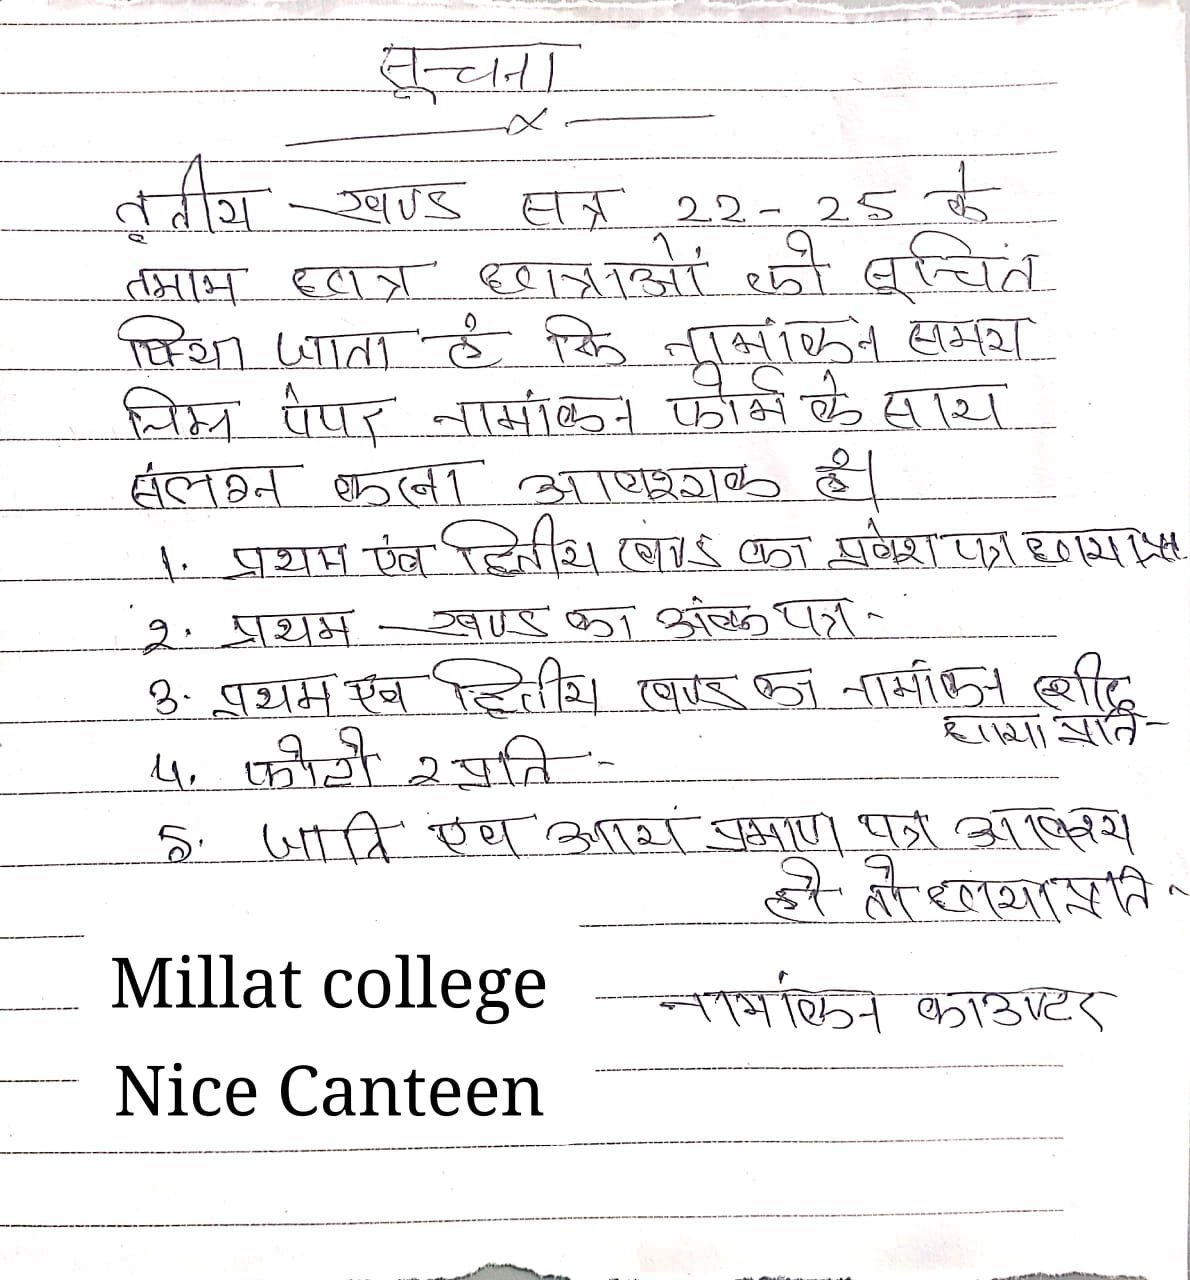 सूचना
तृतीय खण्ड सत्र 22-25 के
तमाम छात्र छात्राओं को सूचित
किया जाता है कि नामांकन समय
निम्न पेपर नामांकन फॉर्म के साथ
संलग्न करना आवश्यक है।
1. प्रथम एंव द्वितीय खण्ड का प्रवेश पत्र छाया
2. प्रथम खण्ड का अंक पत्र -
3. प्रथम एंव द्वितीय खण्ड का नामांकन रशीद
छाया प्रति -
4. फोटो 2 प्रति -
5. जाति एंव आय प्रमाण पत्र
हो तो छाया प्रति -
नामांकन काउण्टर
Millat college
Nice Canteen